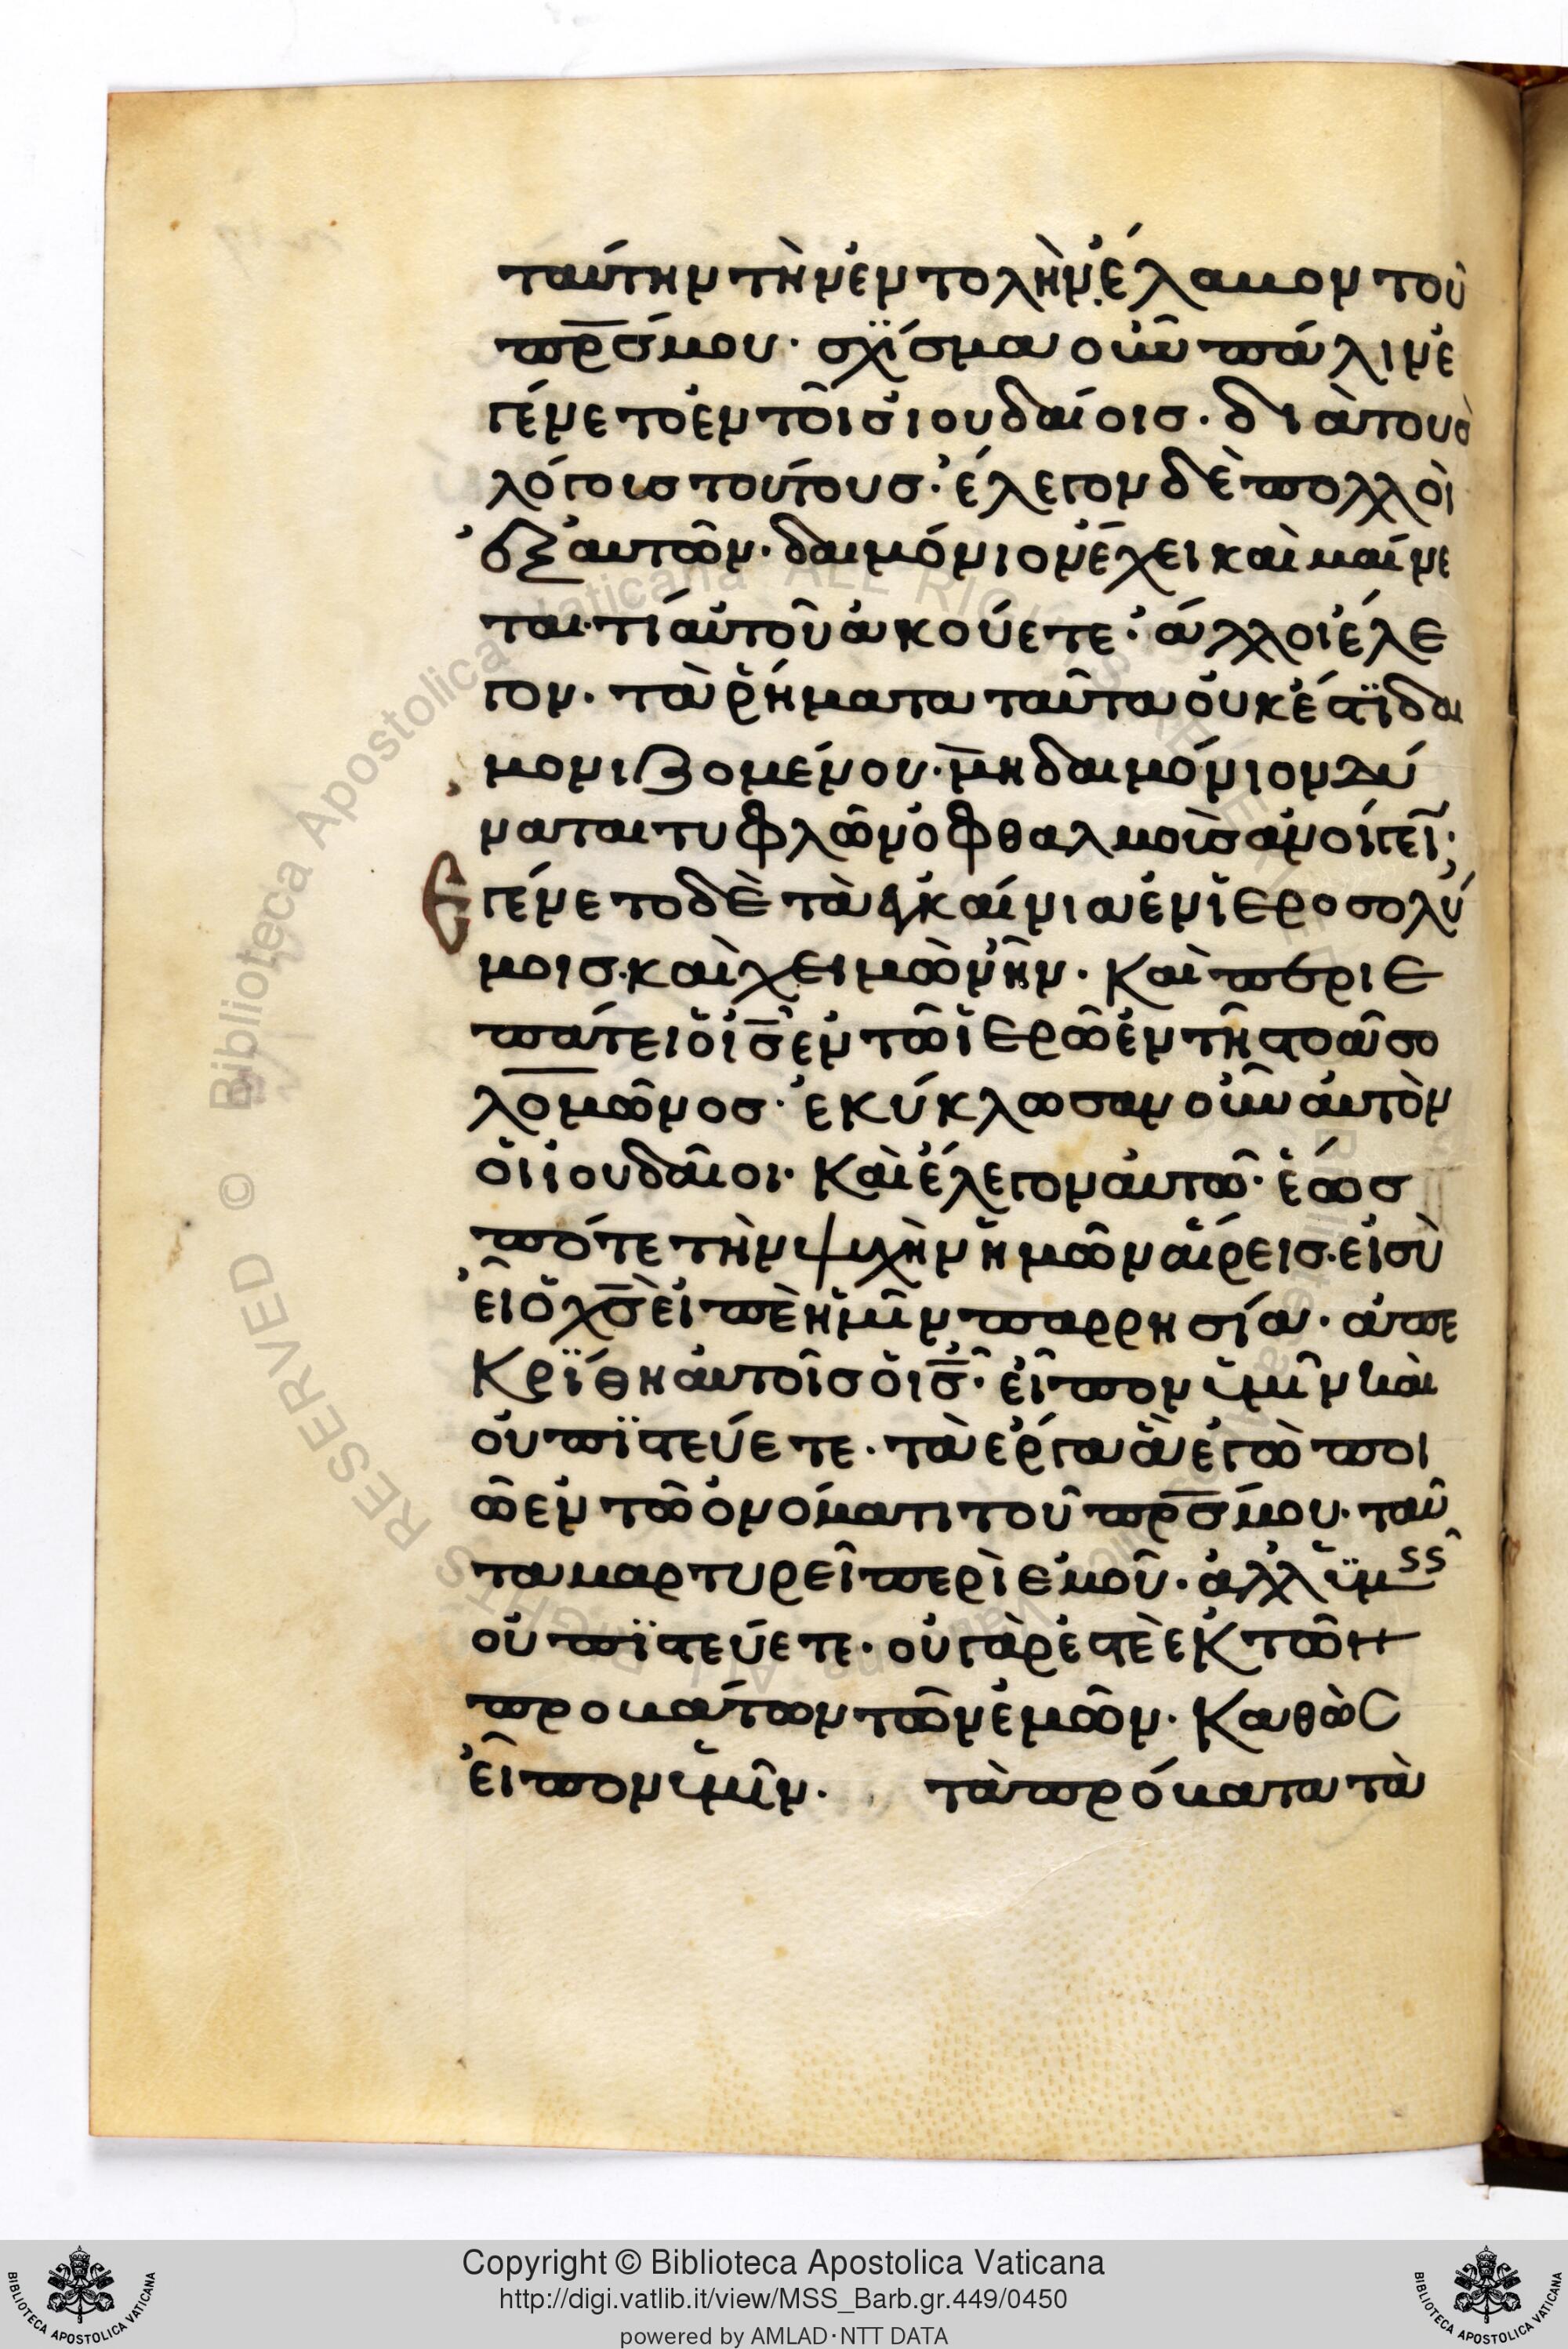 ταύτην τὴν ἐντολὴν ἔλαβον τοῦ
πρ̅σ̅ μου· σχΐσμα οὖν πάλιν ἐ
γένετο ἐν τοῖσ ἰουδαίοισ· διὰ τουσ
λόγουσ τούτουσ· ἔλεγον δὲ πολλοὶ
ἐξ αυτῶν· δαιμόνιον ἔχει καὶ μαίνε
ται· τί αὐτοῦ ἀκούετε· ἄλλοι ἔλε
γον· τὰ ῥήματα ταῦτα οὐκ ἔστϊ δαι
μονιζομένου· μὴ δαιμόνιον δύ
ναται τυφλῶν ὀφθαλμοὺσ ἀνοίγειν;
Ἐγένετο δὲ τὰ ἐγκαίνια ἐν ἱεροσολύ
μοισ· καὶ χειμὼν ἦν· Καὶ περιε
πάτει ὁ ι̅σ̅ ἐν τῶ ἱερῶ ἐν τῆ στοᾶ σο
λομῶνοσ· ἐκύκλωσαν οὖν αὐτὸν
ὁι ἰουδαῖοι· Καὶ ἔλεγον αὐτῶ· ἕωσ
πότε τὴν ψυχὴν ἡμῶν αἴρεισ· εἰ σὺ
εἶ ὁ χ̅σ̅ εἰπὲ ἡμῖν παρρησία· ἀπε
Κρΐθη αὐτοῖσ ὁ ι̅σ̅· εἶπον ὑμῖν καὶ
οὐ πϊστεύετε· τὰ ἔργα ἃ ἐγὼ ποι
ῶ ἐν τῶ ὀνόματι τοῦ πρ̅σ̅ μου· ταῦ
τα μαρτυρεῖ περὶ ἐμοῦ· ἀλλ ὑμεῖσ
οὐ πϊστεύετε· οὐ γὰρ ἐστὲ ἐκ τῶν
προβάτων τῶν ἐμῶν· Καθὼσ
εἶπον ὑμῖν· τὰ πρόβατα τὰ
Copyright © Biblioteca Apostolica Vaticana
http://digi.vatlib.it/view/MSS_Barb.gr.449/0450
powered by AMLAD·NTT DATA
BIBLIOTECA APOSTOLICA VATICANA
BIBLIOTECA APOSTOLICA VATICANA
© Biblioteca Apostolica Vaticana ALL RIGHTS RESERVED